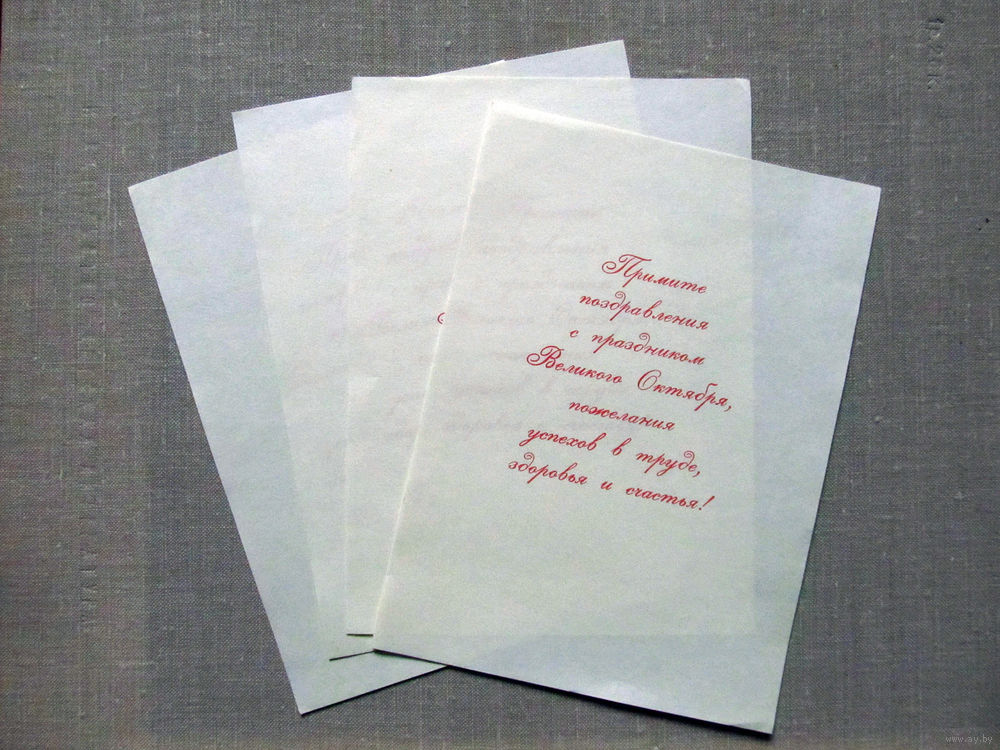 Примите
поздравления
с праздником
Великого Октября,
пожелания
успехов в труде,
здоровья и счастья!
www.ay.by